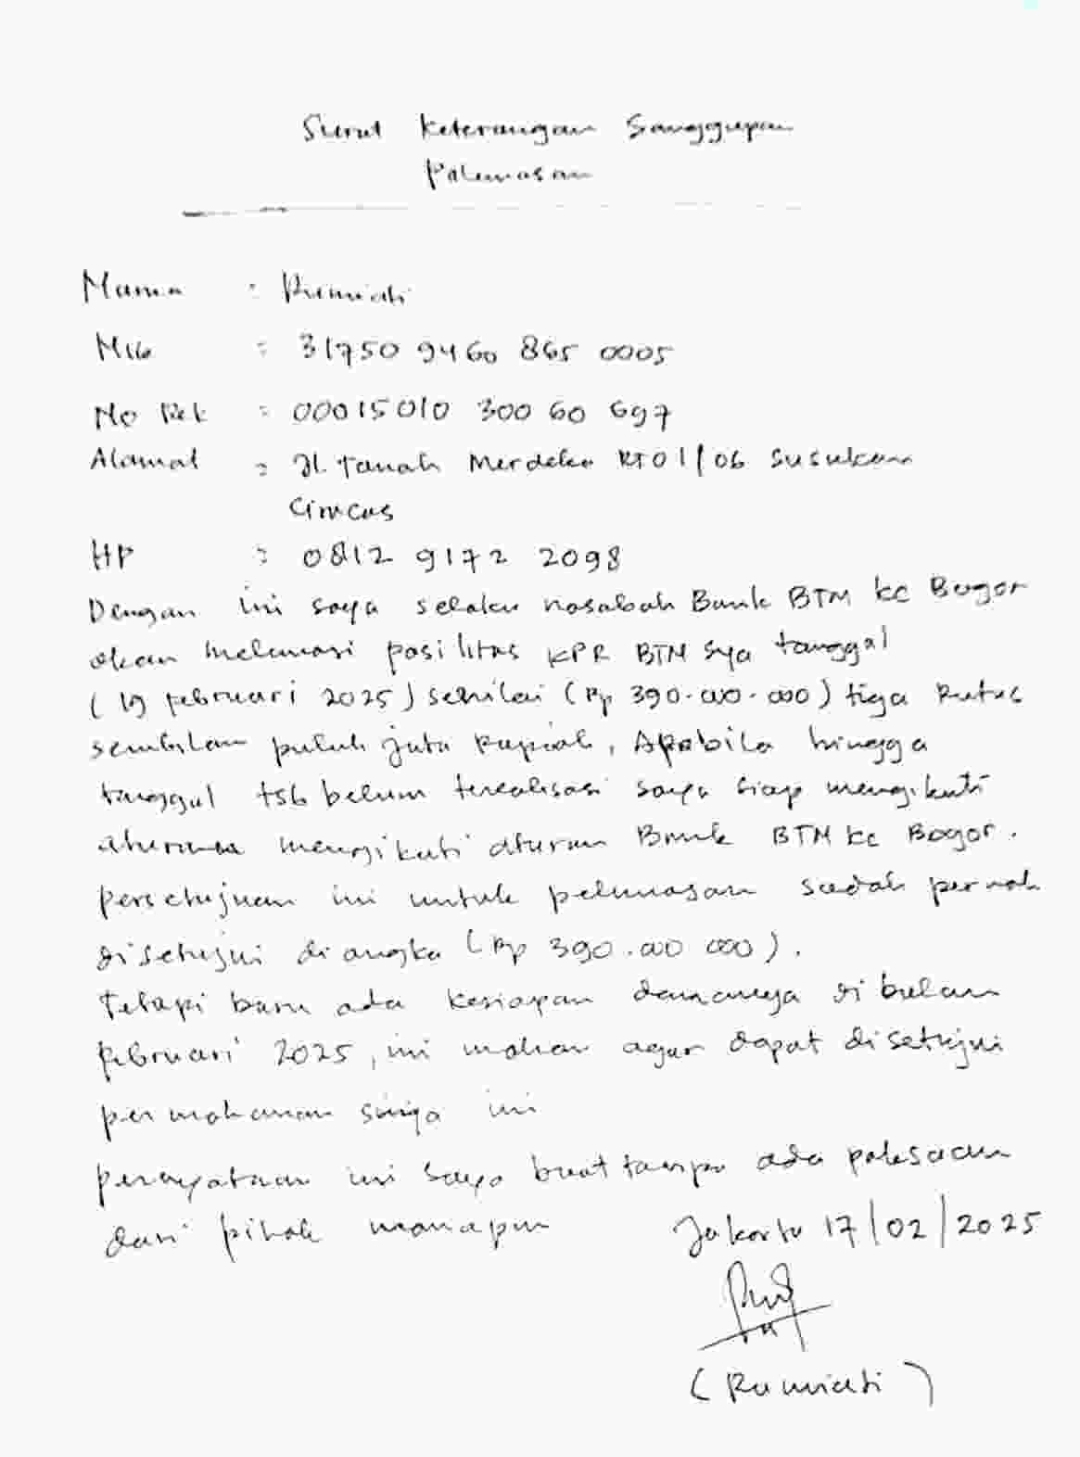 Surat Keterangan Sanggupan
Pelunasan
Nama : Rumiati
NIK : 31750 9460 865 0005
No Rek : 00015010 300 60 697
Alamat : Jl. Tanah Merdeka RT01/06 Susukan
Ciracas
HP : 0812 9172 2098
Dengan ini saya selaku nasabah Bank BTN kc Bogor
akan melunasi pasilitas KPR BTN sya tanggal
(19 februari 2025) senilai (Rp 390.000.000) tiga Ratus
sembilan puluh juta Rupiah, Apabila hingga
tanggal tsb belum terealisasi saya siap mengikuti
mengikuti aturan Bank BTN kc Bogor.
persetujuan ini untuk pelunasan sudah pernah
disetujui di angka (Rp 390.000 000).
Tetapi baru ada kesiapan dananya di bulan
februari 2025, ini mohon agar dapat disetujui
permohonan saya ini
pernyataan ini saya buat tanpa ada paksaan
dari pihak manapun
Jakarta 17/02/2025
(Rumiati)